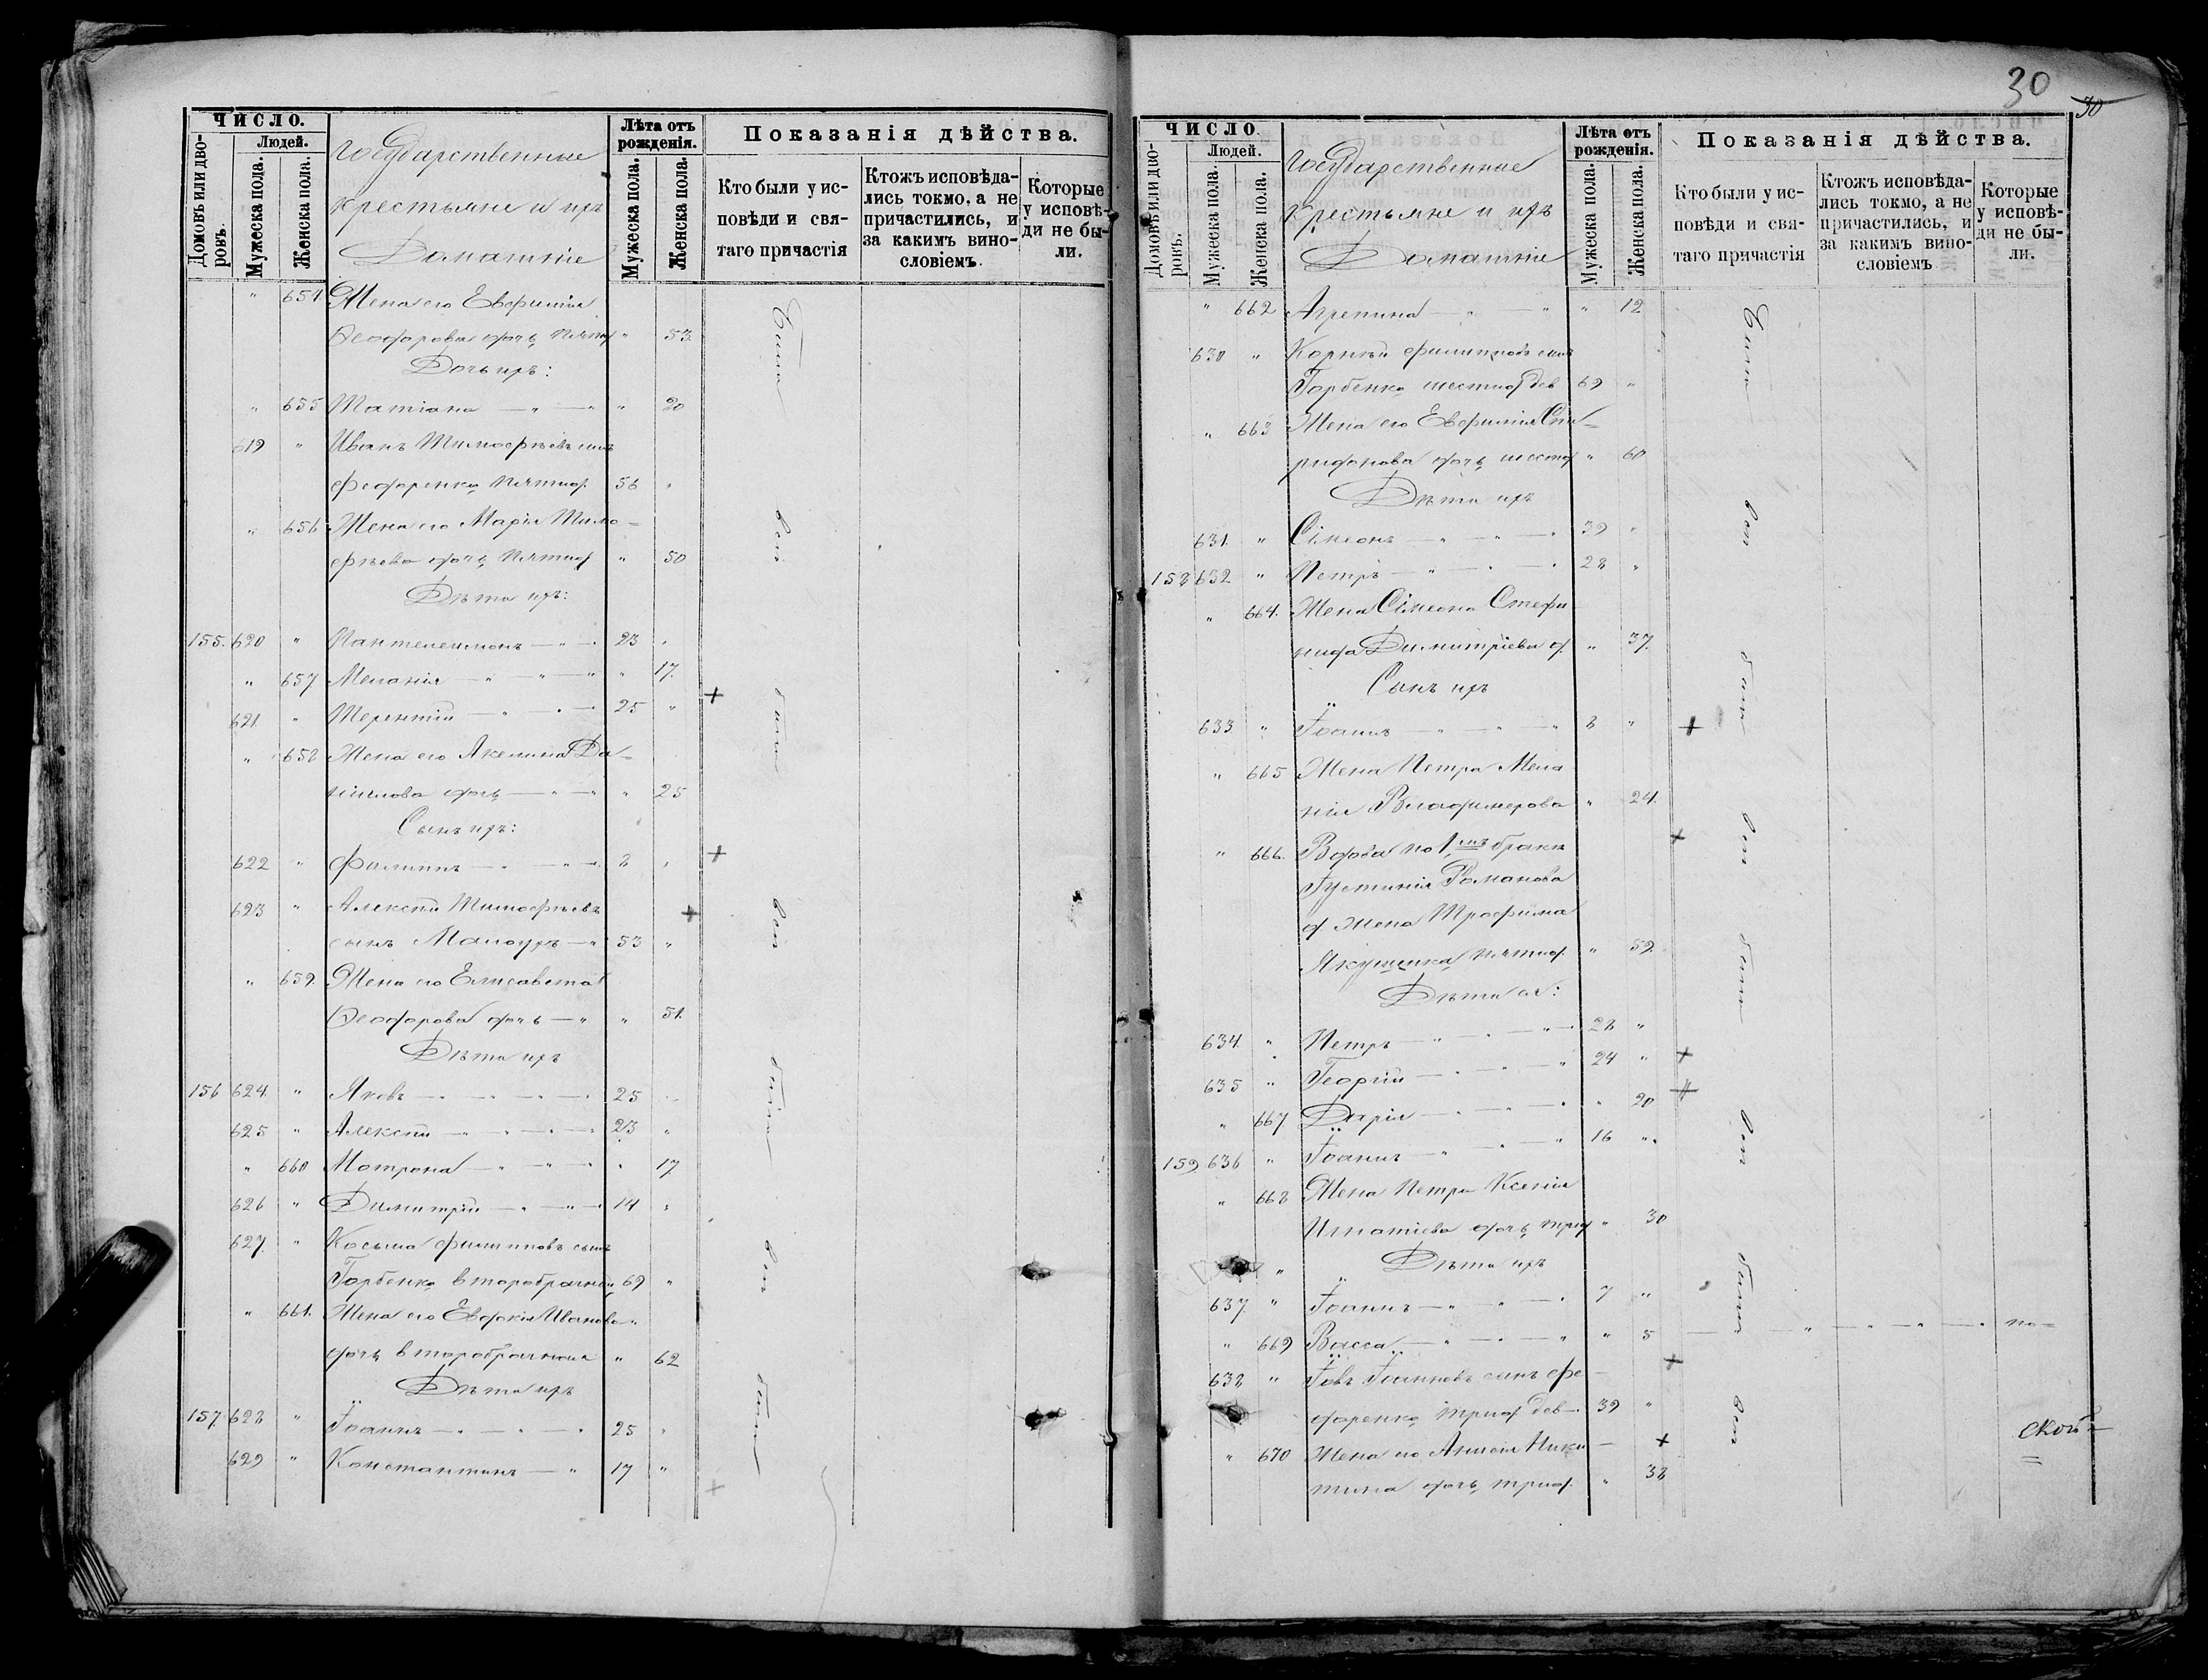 30
30
ЧИСЛО.
Людей.
Домовъ или дворовъ.
Мужеска пола.
Женска пола.
Государственные
крестьяне и ихъ
Домашніе
Лѣта отъ рожденія.
Мужеска пола.
Женска пола.
Показанія дѣйства.
Кто были у исповѣди и святаго причастія
Ктожъ исповѣдались токмо, а не причастились, и за какимъ винословіемъ.
Которые у исповѣди не были.
" 654 Жена его Евфимія
Ѳеодорова дочь " 53
Дочь ихъ:
" 655 Татіана — " — " " 20
619 " Иванъ Тимофѣевъ сынъ
Федоренко 56 "
" 656 Жена его Марія Тимо-
фѣева дочь " 50
Дѣти ихъ:
155. 620 " Пантелеимонъ — " 23 "
" 657 Меланія — " — " " 17.
621 " Терентій — " — " 25 "
" 658 Жена его Акелина Да-
ніилова дочь — " — " " 25
Сынъ ихъ:
622 " Филиппъ — " — " 8 "
623 " Алексѣй Тимофѣевъ
сынъ — " 53 "
" 659. Жена его Елисавета
Ѳеодорова дочь — " " 51.
Дѣти ихъ
156 624. " Яковъ — " — " — " 25
625 " Алексѣй — " — " — " 23 "
" 660 Мотрона — " — " — " " 17
626 " Димитрій — " — " 14 "
627 " Косьма Филипповъ сынъ
Горбенко второбрачный 69 "
" 661. Жена его Евдокія Иванова
дочь второбрачная " 62
Дѣти ихъ
157 628 " Іоаннъ — " — " — " 25 "
629 " Константинъ — " 17 "
Сіи
всѣ
были
всѣ
были
всѣ
были
ЧИСЛО.
Людей.
Домовъ или дворовъ.
Мужеска пола.
Женска пола.
Государственные
крестьяне и ихъ
Домашніе
Лѣта отъ рожденія.
Мужеска пола.
Женска пола.
Показанія дѣйства.
Кто были у исповѣди и святаго причастія
Ктожъ исповѣдались токмо, а не причастились, и за какимъ винословіемъ
Которые у исповѣди не были.
" 662 Агрепина — " — " " 12
630 " Корнѣй Филипповъ сынъ
Горбенко 69 "
" 663 Жена его Евфимія Спи-
ридонова дочь " 60
Дѣти ихъ
631. " Сімеонъ — " — " — " 39 "
158 632 " Петръ — " — " — " 28 "
" 664. Жена Сімеона Стефа
нида Димитріева д. " 37.
Сынъ ихъ
633. " Іоаннъ — " — " — " 8 "
" 665 Жена Петра Мела
нія Владимерова " 24.
" 666. Вдова по 1мъ бракѣ
Іустинія Романова
д Жена Трофима
Якущенка " 52.
Дѣти ея:
634 " Петръ — " — " — " 28 "
635 " Георгій — " — " — " 24 "
" 667 Дарія — " — " — " " 20
159 636 " Іоаннъ — " — " — " 16 "
" 668 Жена Петра Ксенія
Игнатіева дочь " 30
Дѣти ихъ
637. " Іоаннъ — " — " — " 7 "
" 669 Васса — " — " — " " 5 — " — " — " — " по=
638 " Іовъ Іоанновъ сынъ Фе-
доренко 39 "
" 670 Жена его Анисія Ники-
тина дочь " 38
Сіи
всѣ
были
всѣ
были
всѣ
были
всѣ
ской=